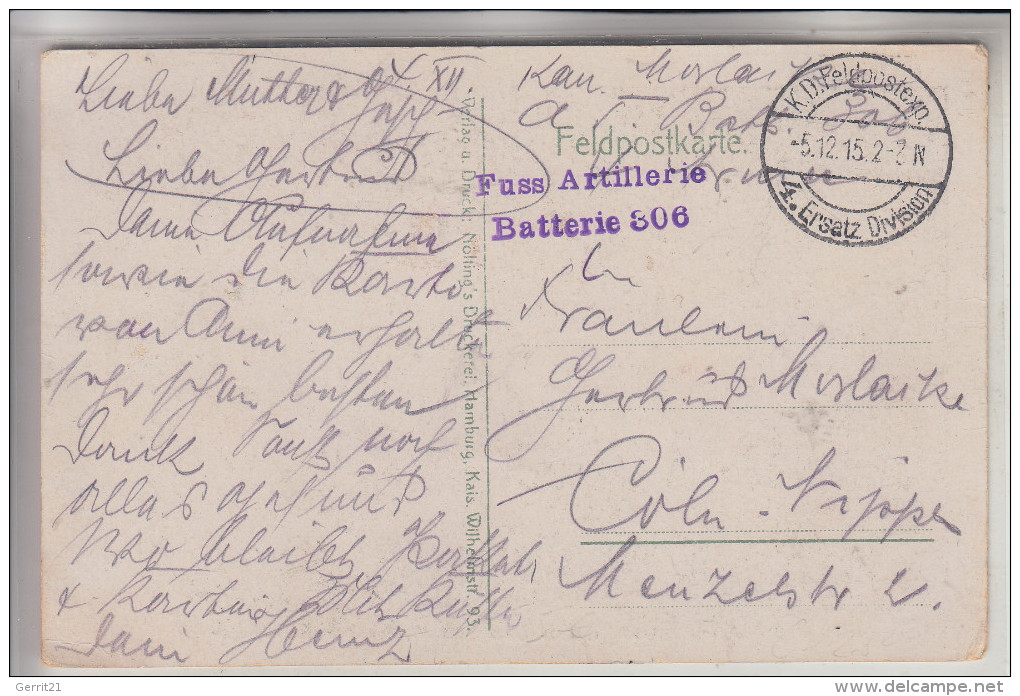 Liebe Mutter &
4. XII
Liebe Gertrud
Deine Aufnahme
sowie die Karte
von Anni erhalten
sehr schön besten
Dank Sonst noch
alles gesund
Wo bleibt
&
dein Heinz
Verlag u. Druck: Nölting's Druckerei, Hamburg, Kais. Wilhelmstr. 93.
Kan. Morlaike
Feldpostkarte.
Fuss Artillerie
Batterie 306
K.D. Feldpostexp.
-5.12.15. 2-7 N
4. Ersatz Division
Fräulein
Gertrud Morlaike
Cöln-Nippes
Menzelstr 2.
© Gerrit21
www.delcampe.net